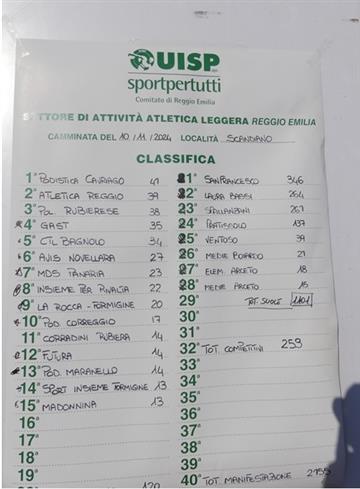 UISP
sportpertutti
Comitato di Reggio Emilia
SETTORE DI ATTIVITÀ ATLETICA LEGGERA REGGIO EMILIA
CAMMINATA DEL 10/11/2024 LOCALITÀ SCANDIANO
CLASSIFICA
1° PODISTICA CAVRIAGO 41
2° ATLETICA REGGIO 39
3° POL RUBIERESE 38
4° GAST 35
5° CTL BAGNOLO 34
6° AVIS NOVELLARA 27
7° MDS PANARIA 23
8° INSIEME PER RIVALTA 22
9° LA ROCCA - FORMIGINE 20
10° POD. CORREGGIO 17
11° CORRADINI RUBIERA 14
12° FUTURA 14
13° POD. MARANELLO 14
14° SPORT INSIEME FORMIGINE 13
15° MADONNINA 13
16°
17°
18°
19°
120
21° SAN FRANCESCO 346
22° LAURA BASSI 264
23° SPALLANZANI 261
24° 137
25° VENTOSO 39
26° MEDIE BOIARDO 21
27° ELEM. ARCETO 18
28° MEDIE ARCETO 15
29° TOT. SUOLE 1101
30°
31°
32° TOT. COMPETITIVI 259
33°
34°
35°
36°
37°
38°
39°
40° TOT. MANIFESTAZIONE